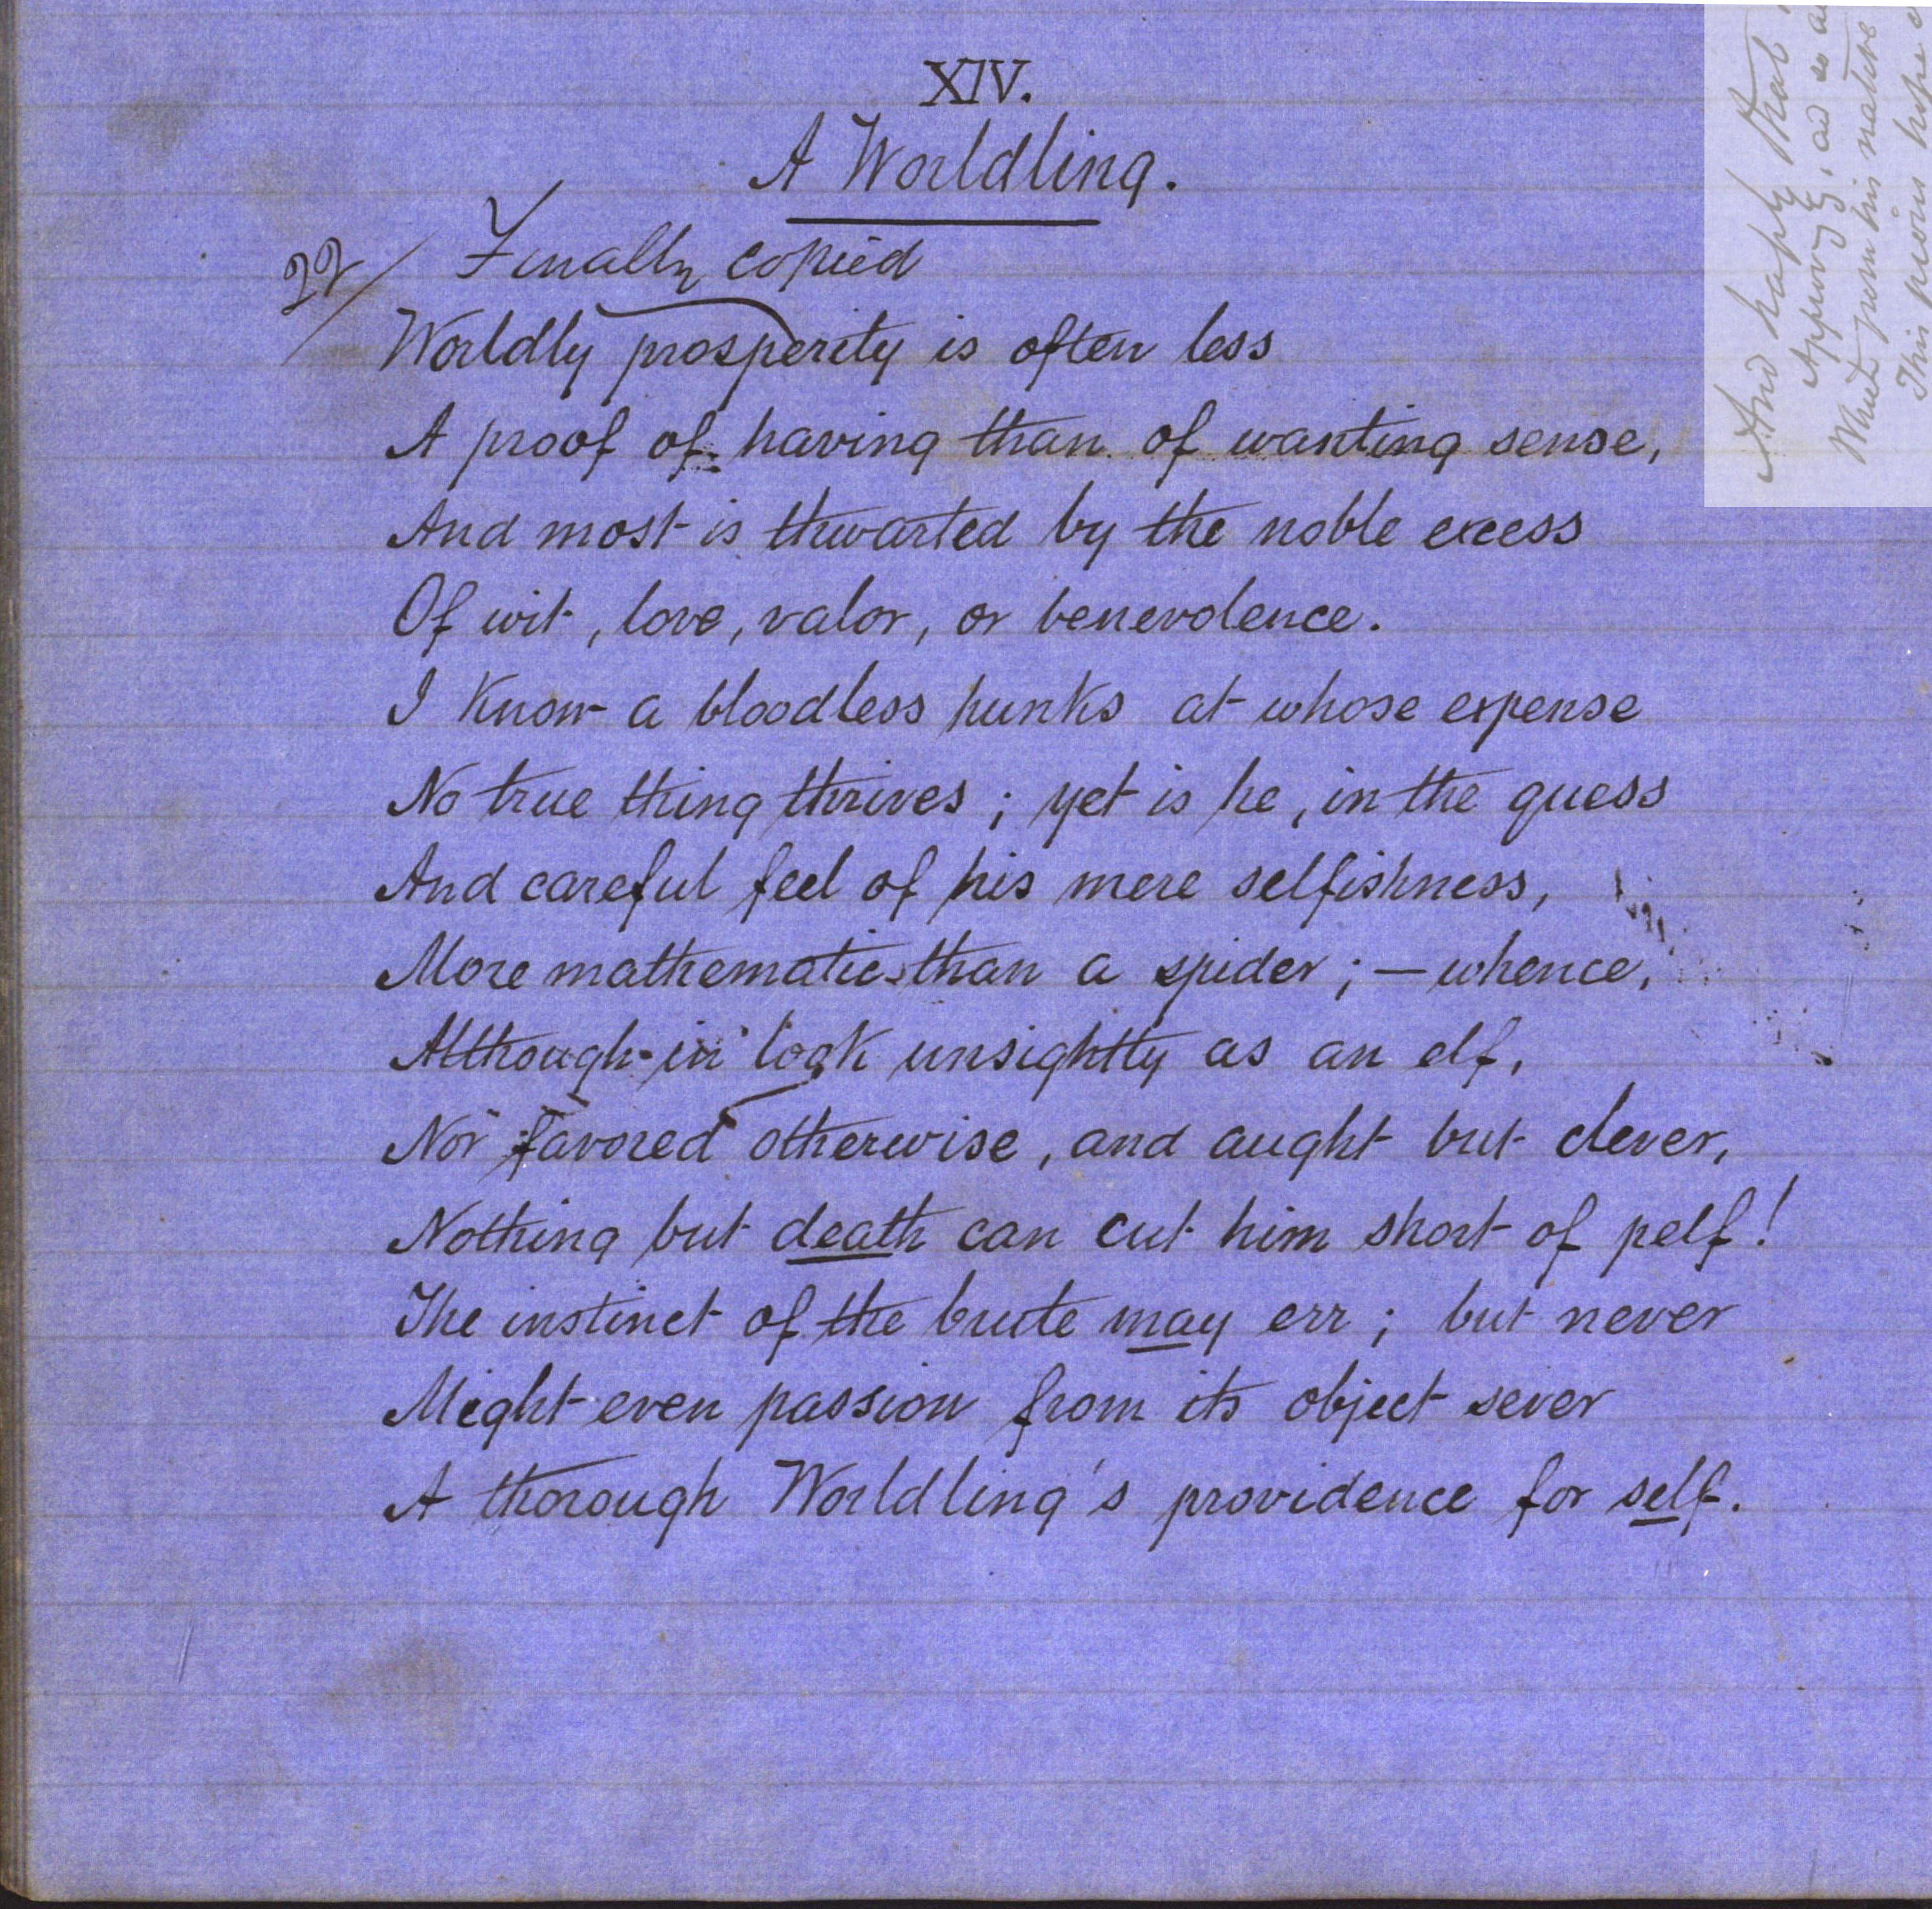 XIV.
A Worldling.
22/ Finally copied
Worldly prosperity is often less
A proof of having than of wanting sense,
And most is thwarted by the noble excess
Of wit, love, valor, or benevolence.
I know a bloodless hunks at whose expense
No true thing thrives; yet is he, in the guess
And careful feel of his mere selfishness,
More mathematic than a spider;—whence,
Although in look unsightly as an elf,
Nor favored otherwise, and aught but clever,
Nothing but death can cut him short of pelf!
The instinct of the brute may err; but never
Might even passion from its object sever
A thorough Worldling's providence for self.
And haply that
What from his native